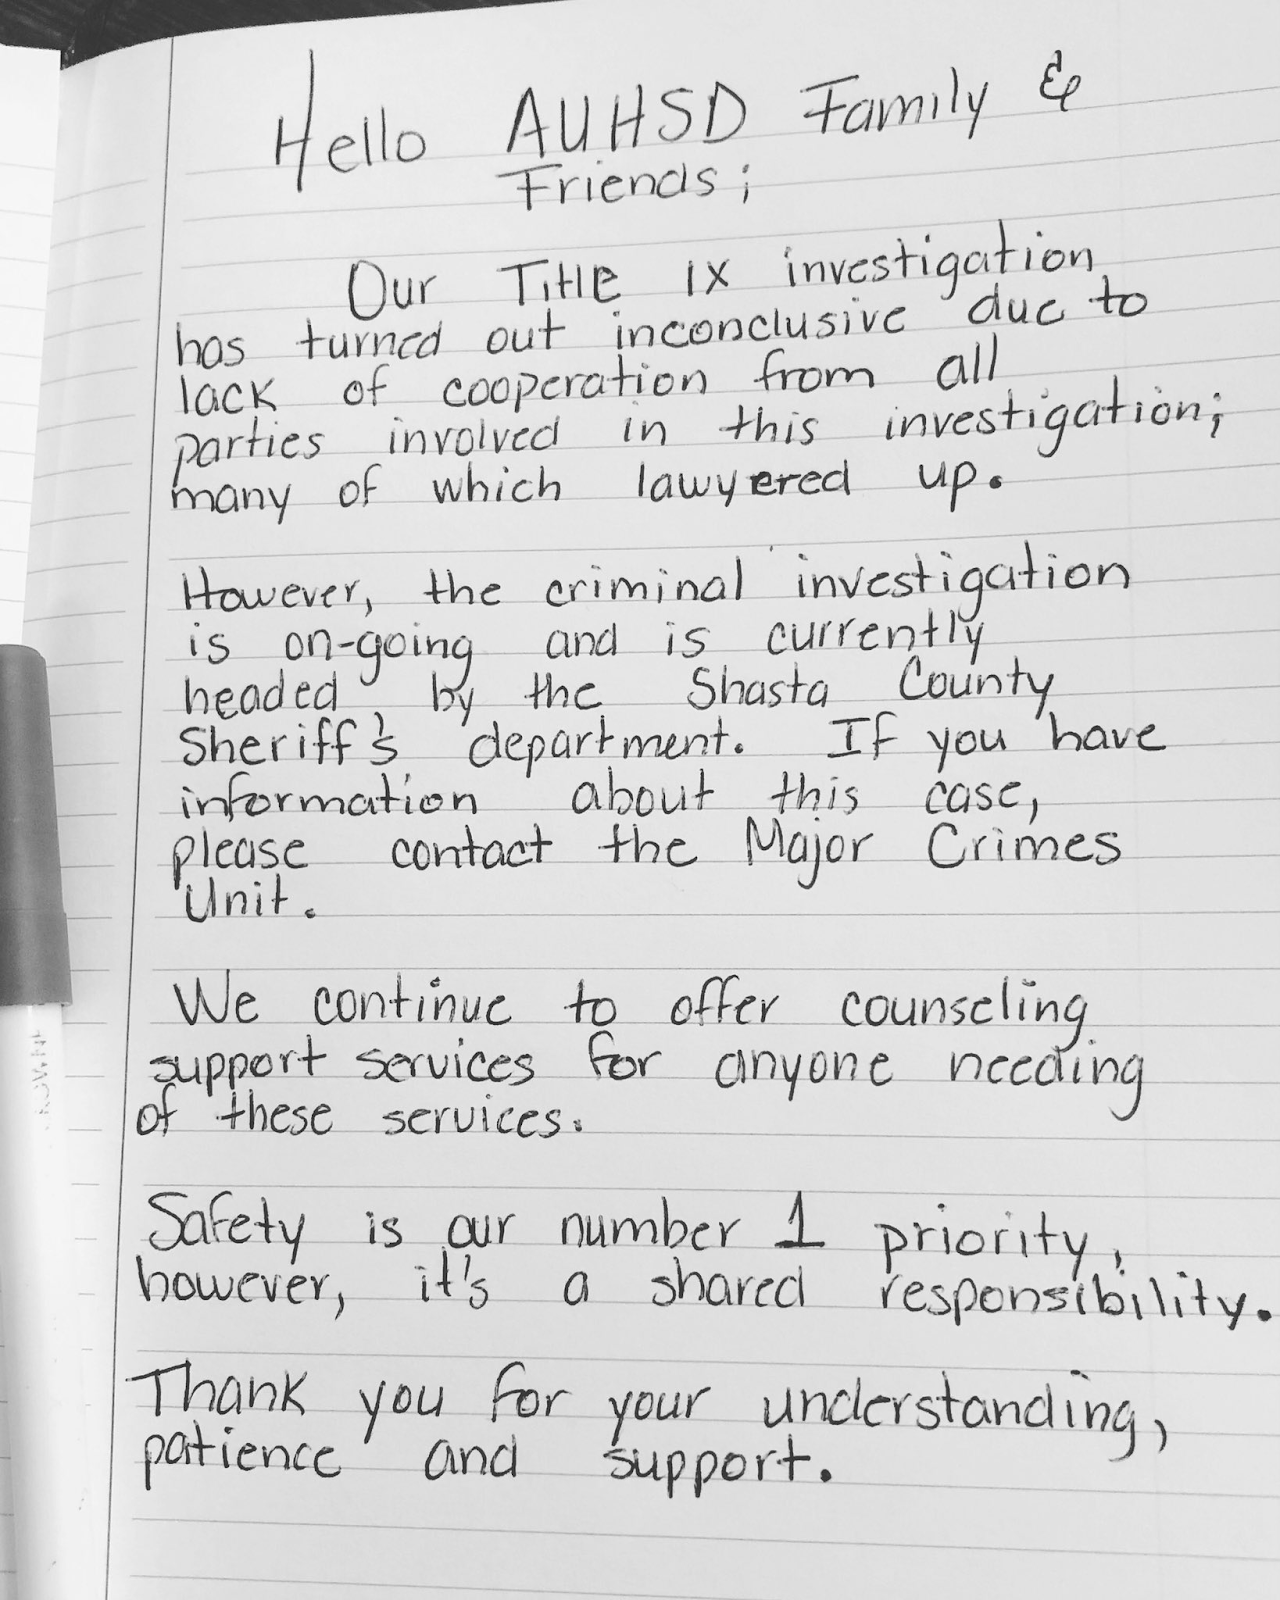 Hello AUHSD Family &
Friends;
Our Title IX investigation
has turned out inconclusive due to
lack of cooperation from all
parties involved in this investigation;
many of which lawyered up.
However, the criminal investigation
is on-going and is currently
headed by the Shasta County
Sheriff's department. If you have
information about this case,
please contact the Major Crimes
Unit.
We continue to offer counseling
support services for anyone needing
of these services.
Safety is our number 1 priority,
however, it's a shared responsibility.
Thank you for your understanding,
patience and support.